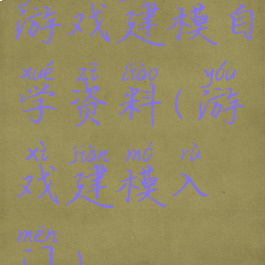 游戏建模自
xué zī liào yóu
学资料(游
xì jiàn mó rù
戏建模入
mén
门)